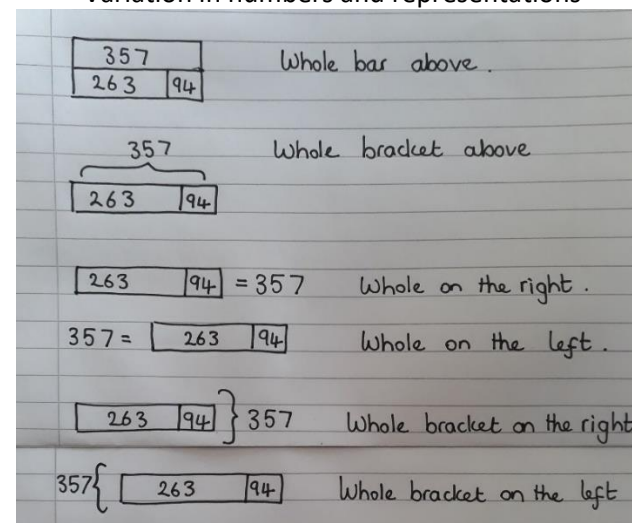 variation in numbers and representations
357 Whole bar above.
263 94
357 Whole bracket above
263 94
263 94 = 357 Whole on the right.
357 = 263 94 Whole on the left.
263 94 } 357 Whole bracket on the right
357 { 263 94 Whole bracket on the left